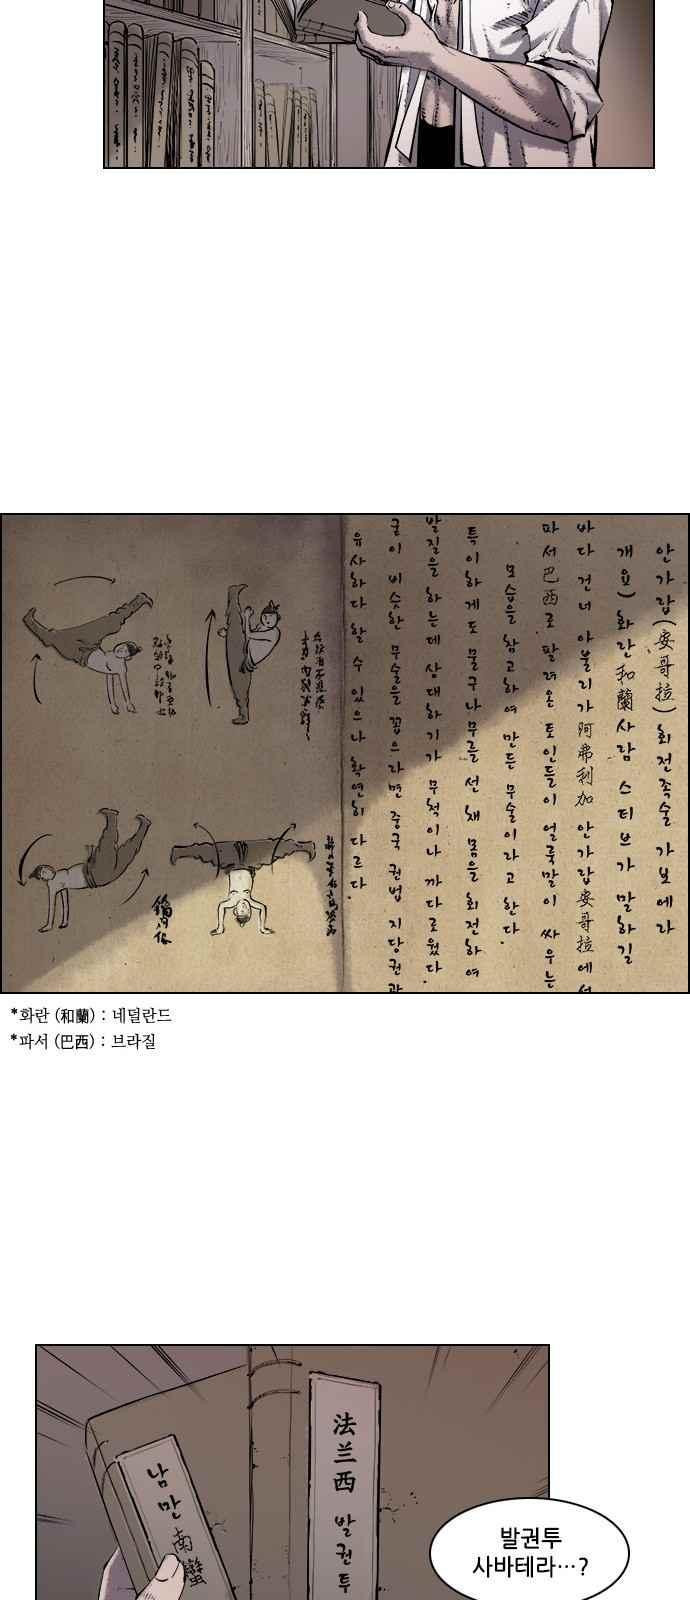 안가랍(安哥拉) 회전족술 가보에라
개요) 화란和蘭 사람 스티브가 말하길
바다 건너 아불리가阿弗利加 안가랍安哥拉에서
파서巴西로 팔려온 토인들이 얼룩말이 싸우는
모습을 참고하여 만든 무술이라고 한다.
특이하게도 물구나무를 선 채 몸을 회전하여
발질을 하는데 상대하기가 무척이나 까다로웠다.
굳이 비슷한 무술을 꼽으라면 중국 권법 지당권과
유사하다 할 수 있으나 확연히 다르다.
*화란 (和蘭) : 네덜란드
*파서 (巴西) : 브라질
남만南蠻
法兰西 발권투
발권투
사바테라…?